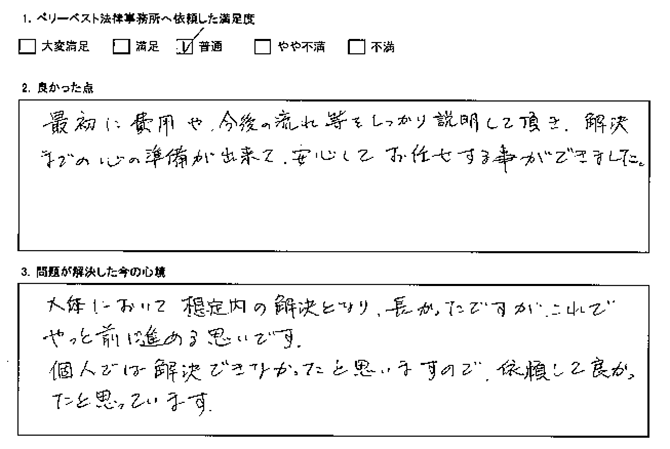 1. ベリーベスト法律事務所へ依頼した満足度
□ 大変満足 □ 満足 ☑ 普通 □ やや不満 □ 不満
2. 良かった点
最初に費用や、今後の流れ等をしっかり説明して頂き、解決
までの心の準備が出来て、安心してお任せする事ができました。
3. 問題が解決した今の心境
大体において想定内の解決となり、長かったですが、これで
やっと前に進める思いです。
個人では解決できなかったと思いますので、依頼して良かっ
たと思っています。